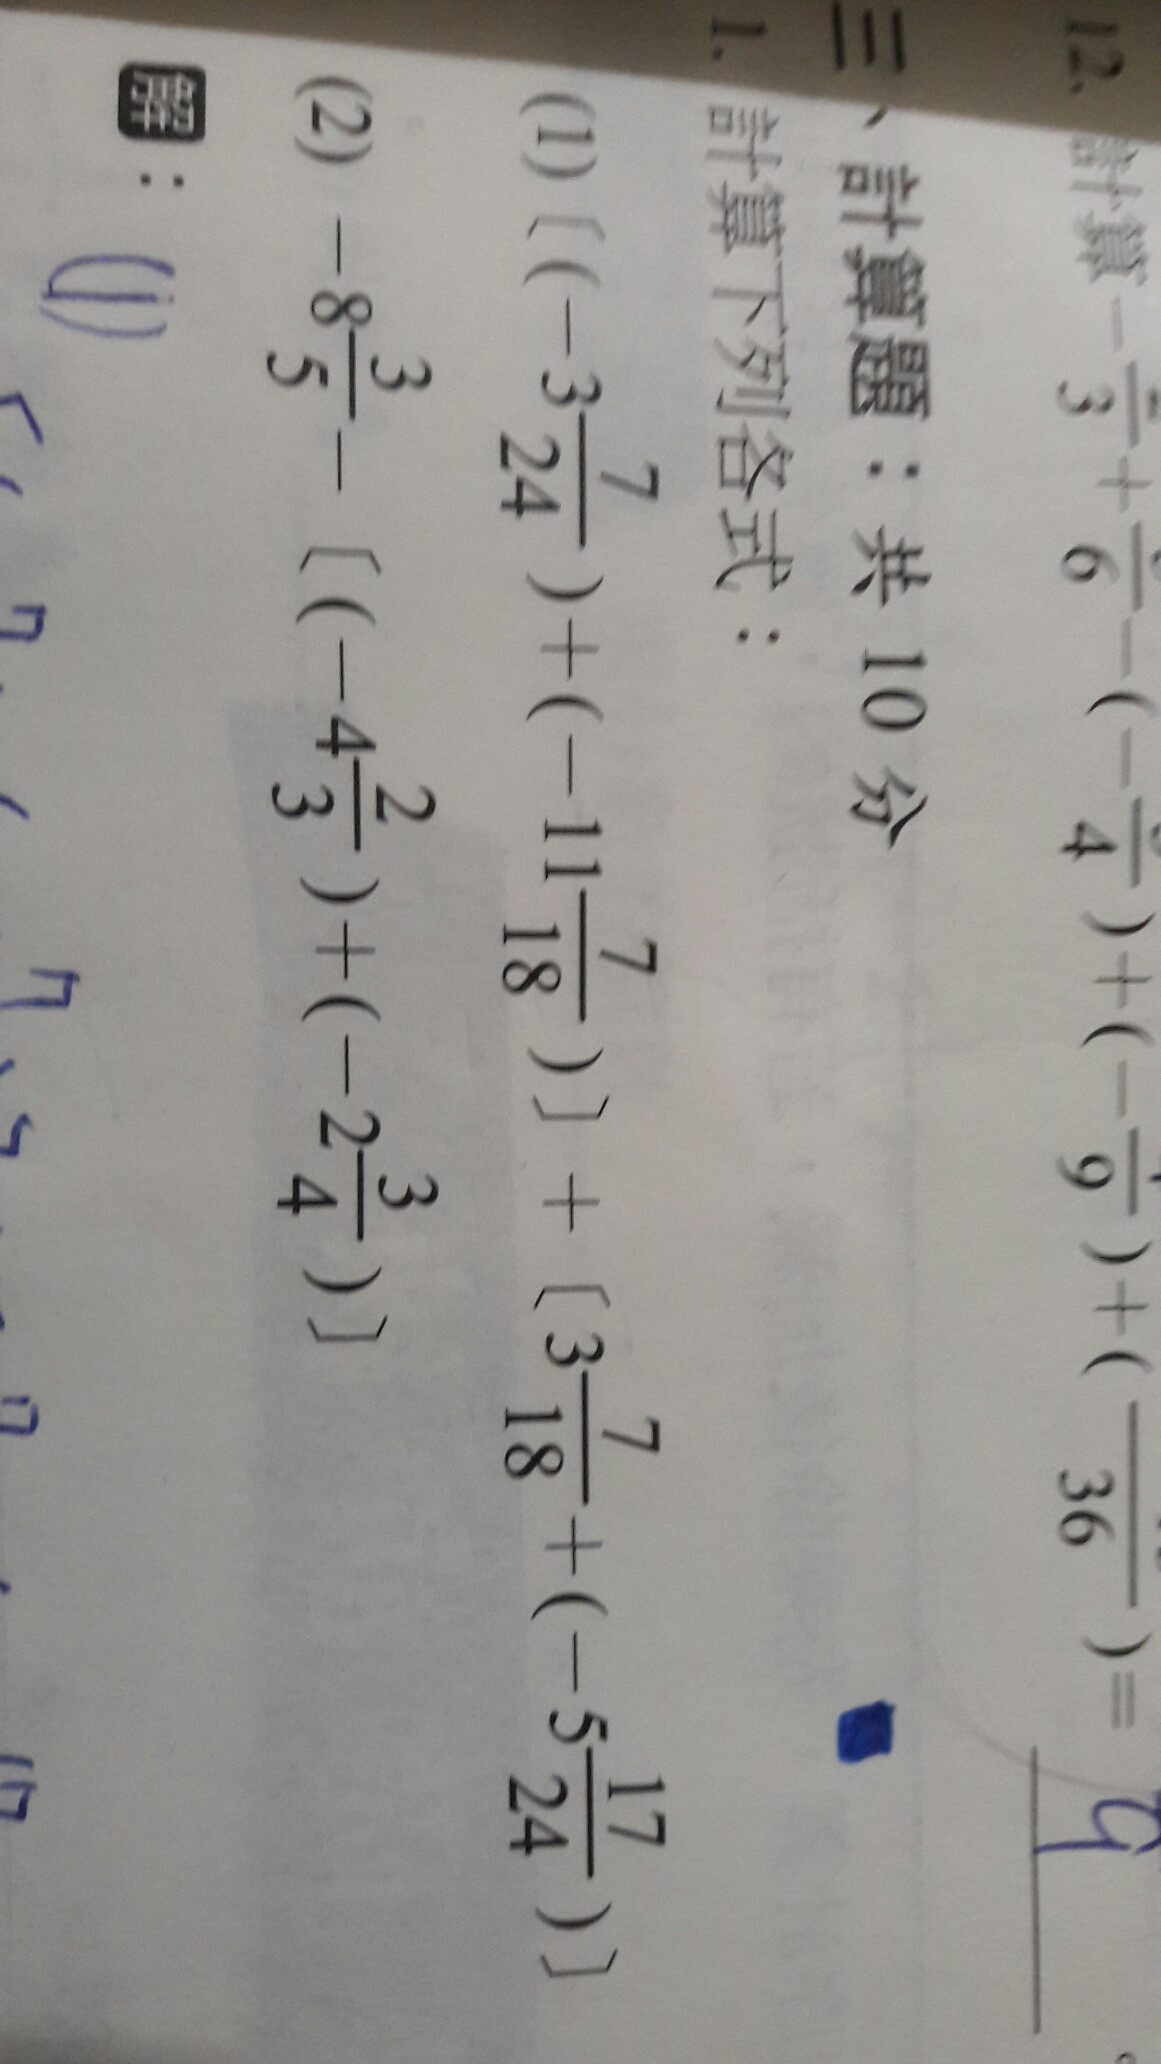 12. 計算 − /3 + /6 − (− /4) + (− /9) + ( /36) = 9
三、計算題：共 10 分
1. 計算下列各式：
(1)〔(−3 7/24) + (−11 7/18)〕+〔3 7/18 + (−5 17/24)〕
(2) −8 3/5 −〔(−4 2/3) + (−2 3/4)〕
解：(1)